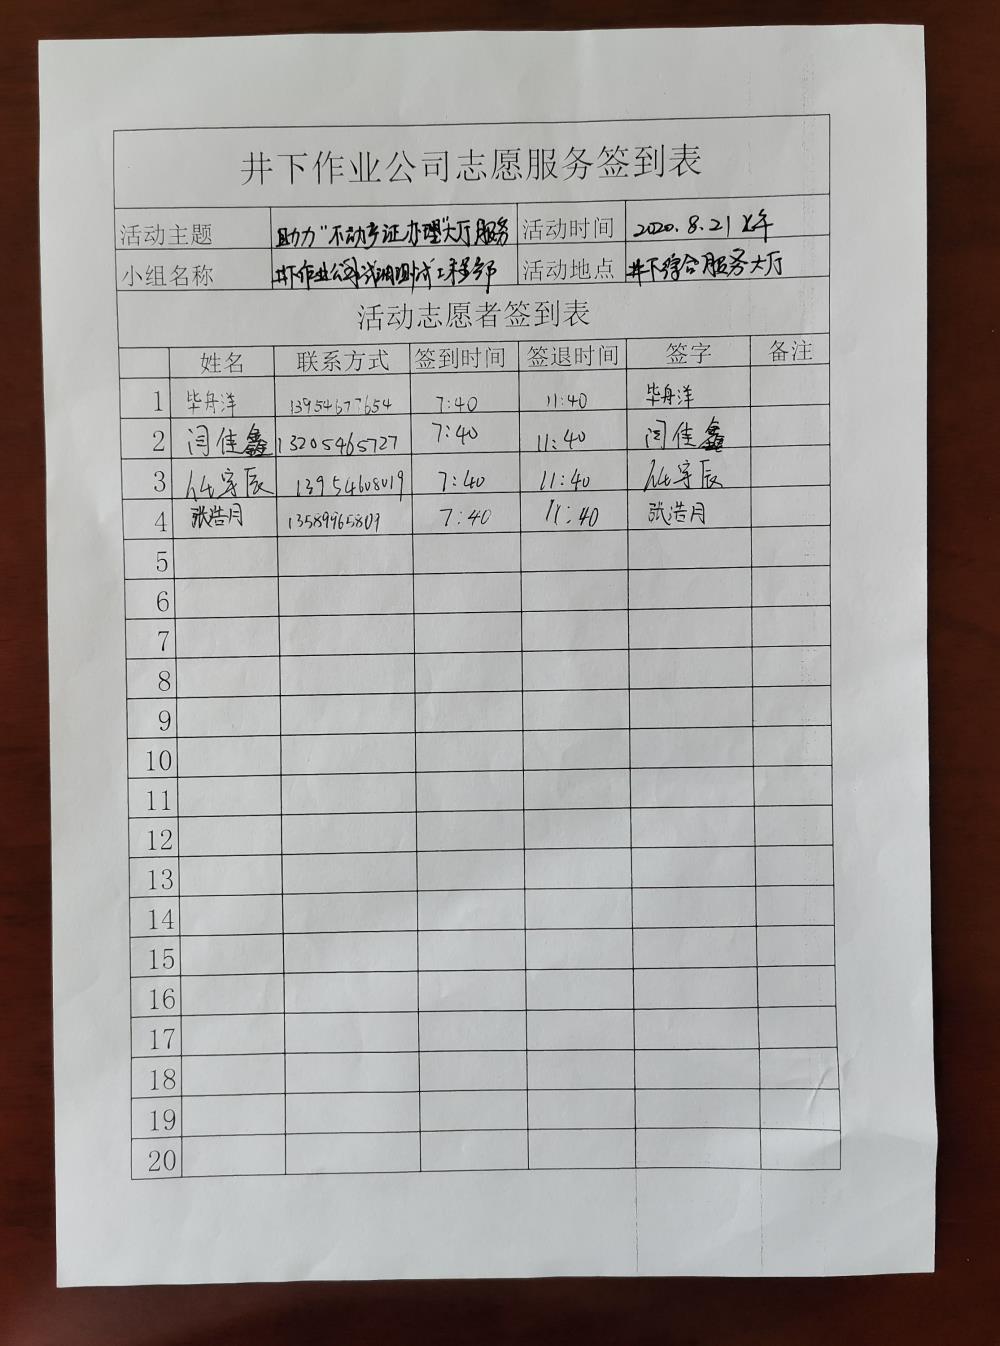 井下作业公司志愿服务签到表
活动主题 助力"不动产证办理"大厅服务 活动时间 2020.8.21上午
小组名称 井下作业公司试油测试工程部 活动地点 井下综合服务大厅
活动志愿者签到表
姓名 联系方式 签到时间 签退时间 签字 备注
1 毕舟洋 13954677654 7:40 11:40 毕舟洋
2 闫佳鑫 13205465727 7:40 11:40 闫佳鑫
3 宇辰 13954608019 7:40 11:40 宇辰
4 张浩月 13589965809 7:40 11:40 张浩月
5
6
7
8
9
10
11
12
13
14
15
16
17
18
19
20